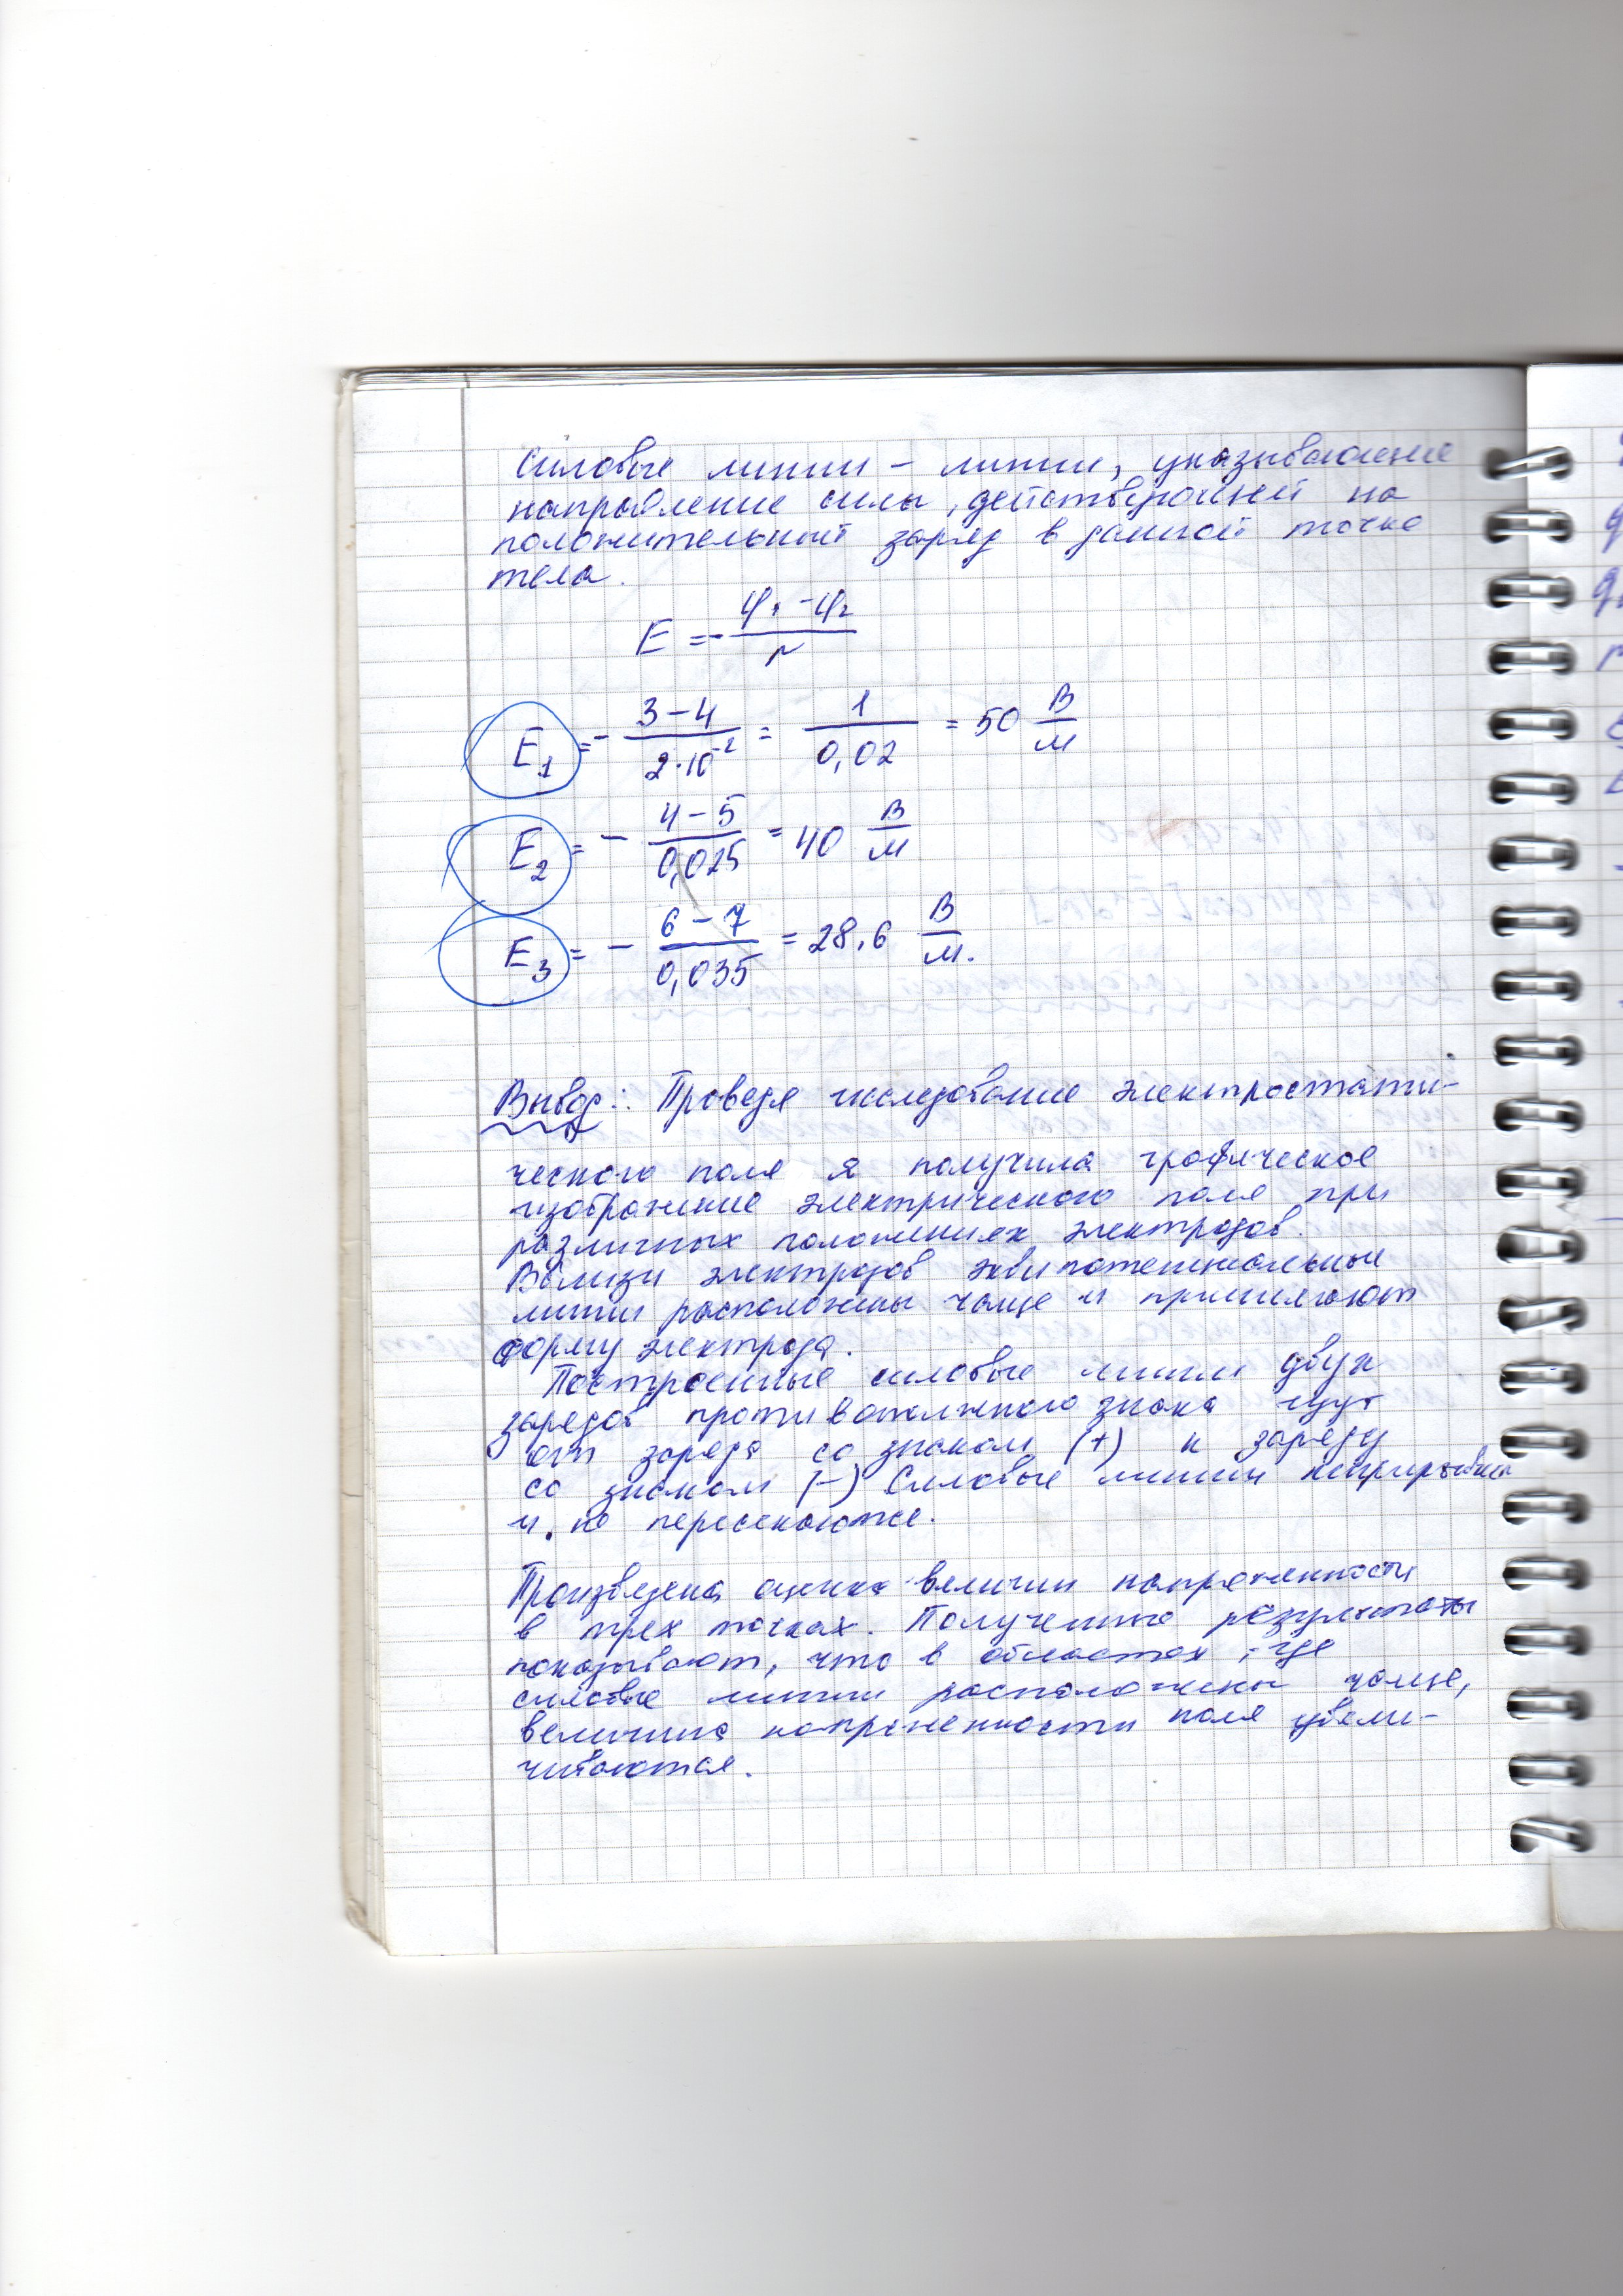 Силовые линии – линии, указывающие
направление силы, действующей на
положительный заряд в данной точке
тела.
E = - φ₁ - φ₂ / r
E₁ = - 3 - 4 / 2·10⁻² = 1 / 0,02 = 50 В/м
E₂ = - 4 - 5 / 0,025 = 40 В/м
E₃ = - 6 - 7 / 0,035 = 28,6 В/м.
Вывод: Проведя исследование электростати-
ческого поля я получила графическое
изображение электрического поля при
различных положениях электродов.
Вблизи электродов эквипотенциальные
линии расположены чаще и принимают
форму электрода.
Построенные силовые линии двух
зарядов противоположного знака идут
от заряда со знаком (+) к заряду
со знаком (-) Силовые линии
и не пересекаются.
Произведена оценка величин напряженности
в трех точках. Полученные результаты
показывают, что в областях, где
силовые линии расположены чаще,
величина напряженности поля увели-
чиваются.